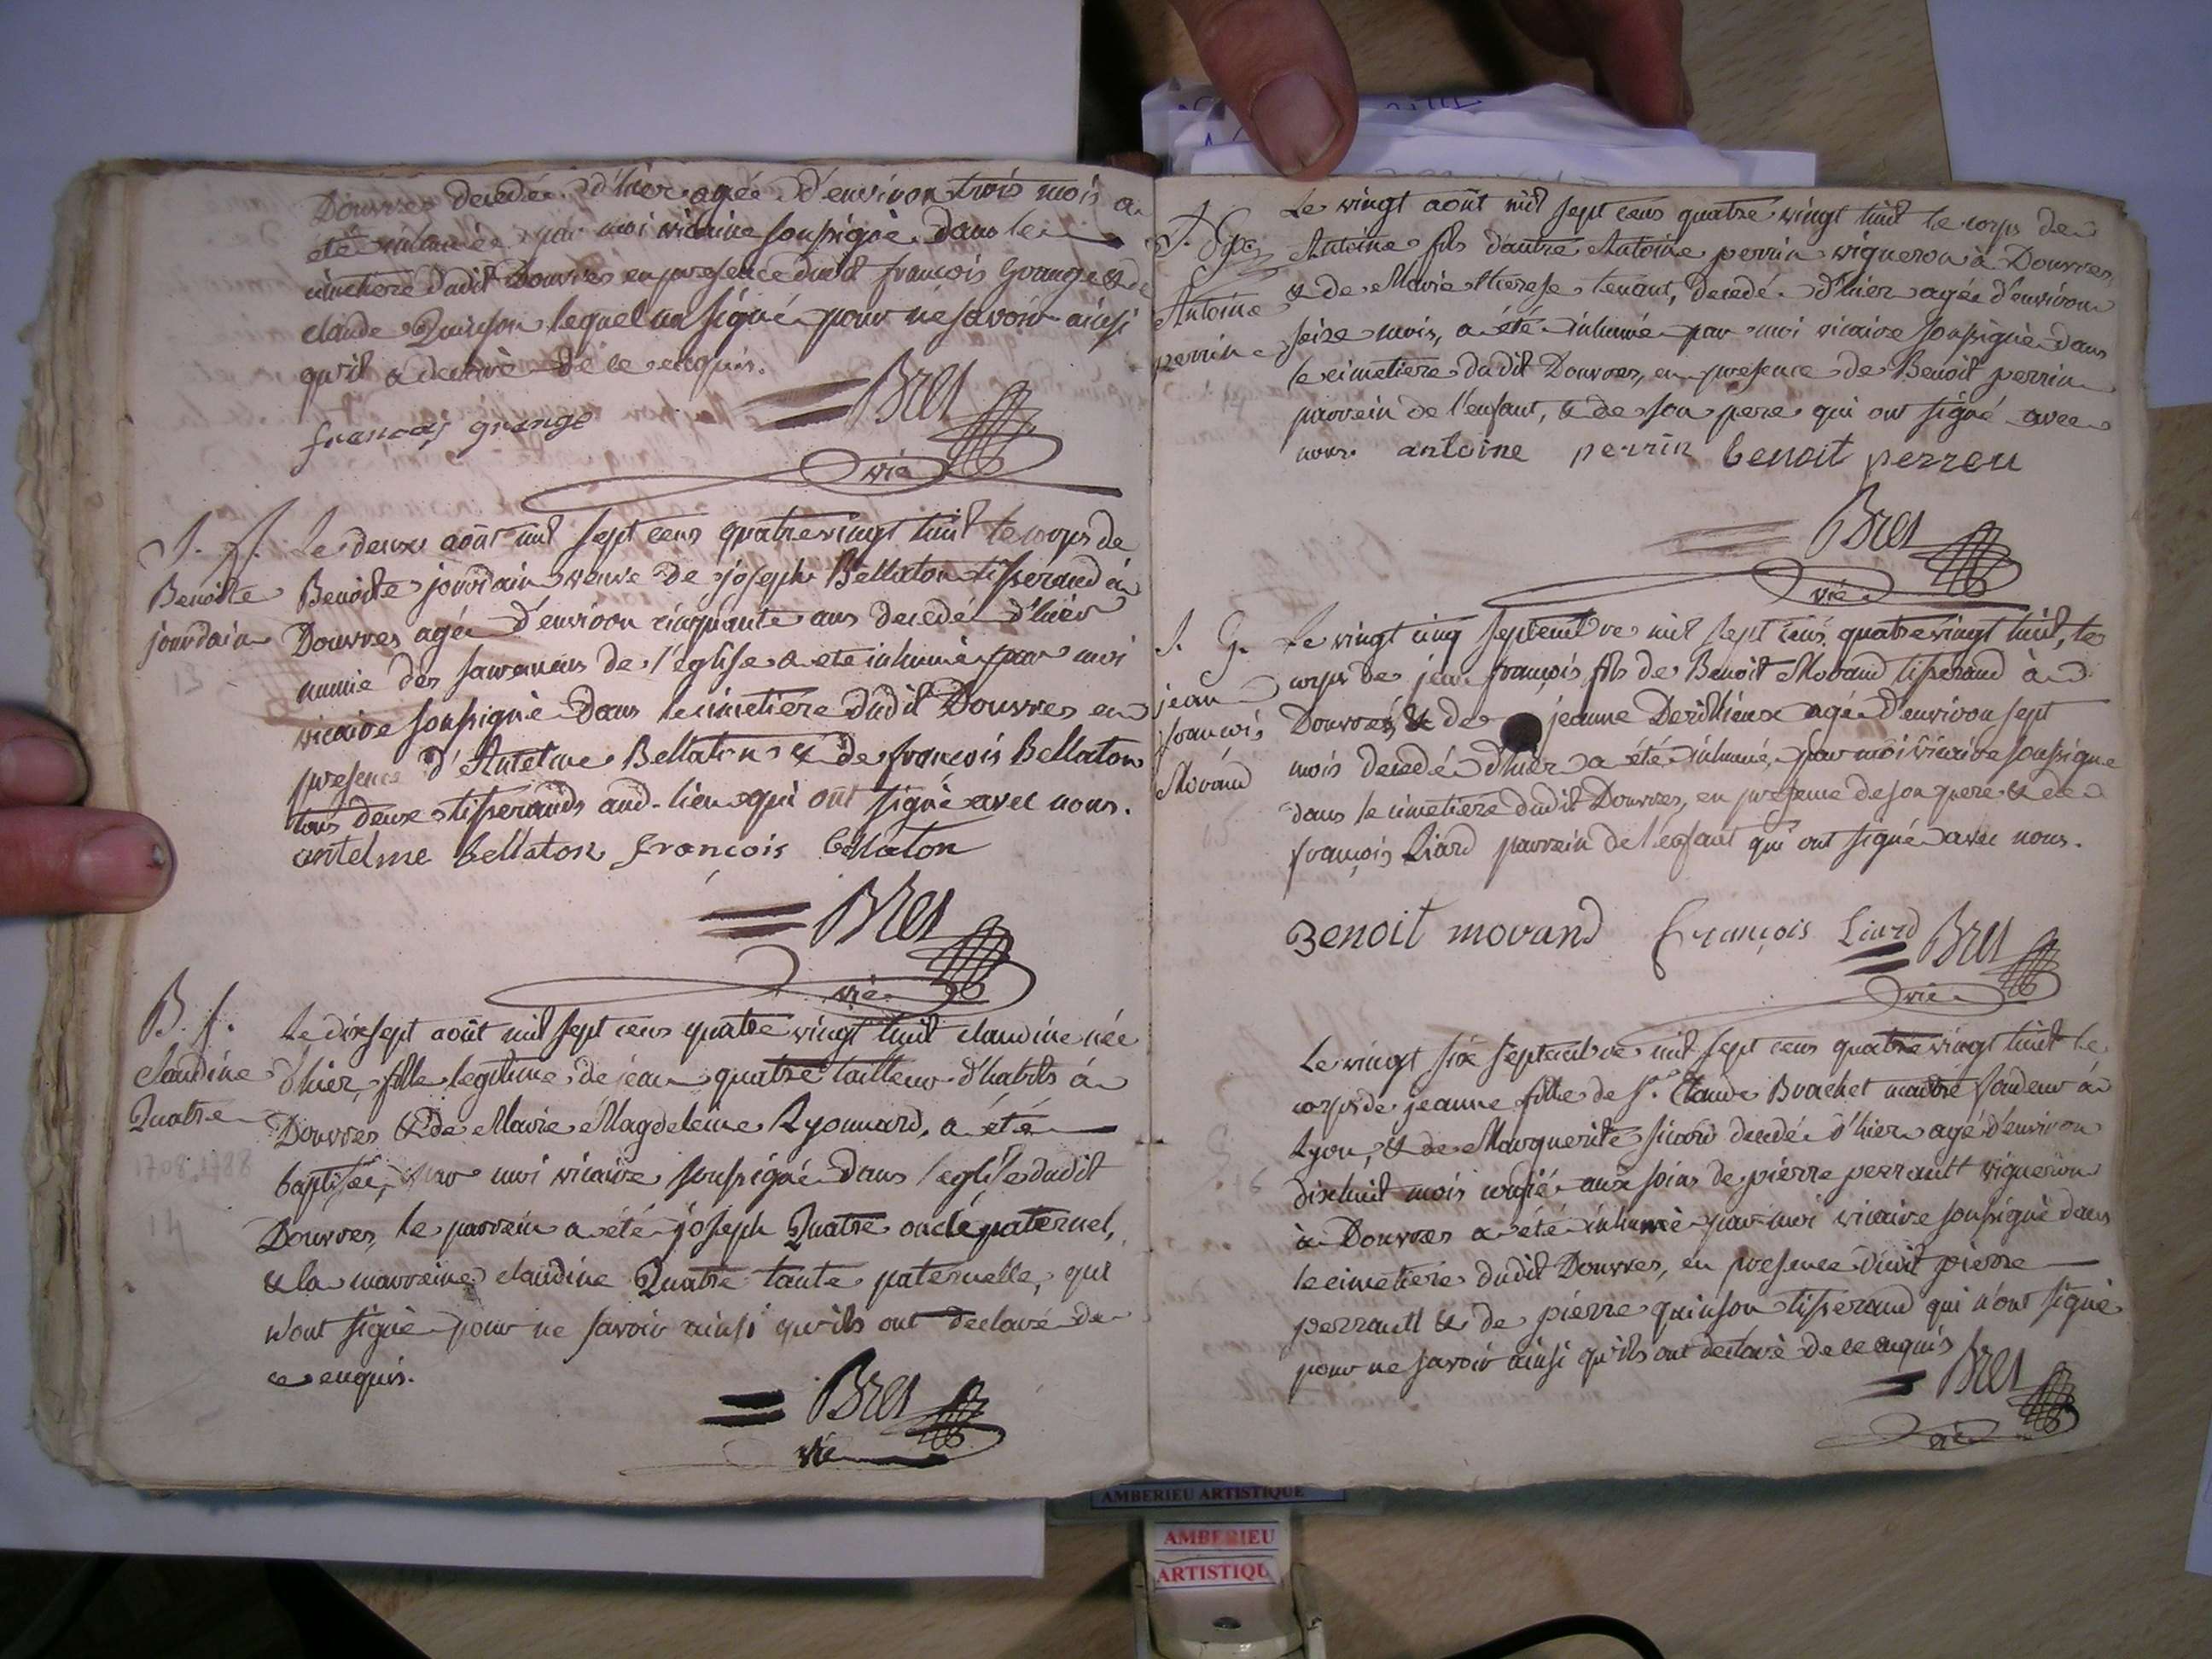 Douvres decedée d'hier agée d'environ trois mois a
été inhumée par moi vicaire soussigné dans le
cimetiere dudit Douvres en presence dudit françois Grange & de
claude Quinson lequel n'a signé pour ne savoir ainsi
qu'il a declaré de ce enquis.
françois grange
Bret
vic
Benoite
jourdain
Le deux août mil sept cens quatre vingt huit le corps de
Benoite jourdain veuve de joseph Bellaton tisserand à
Douvres agée d'environ cinquante ans decedé d'hier
munie des sacremens de l'église a été inhumée par moi
vicaire soussigné dans le cimetiere dudit Douvres en
presence d'Antelme Bellaton & de françois Bellaton
tous deux tisserands aud. lieu qui ont signé avec nous.
antelme bellaton françois bellaton
Bret
vic
B. f.
Claudine
Quatre
1708.1788
Le dixsept août mil sept cens quatre vingt huit claudine née
d'hier, fille legitime de jean quatre tailleur d'habits à
Douvres & de Marie Magdeleine Lyonnard, a été
baptisée, par moi vicaire soussigné dans l'église dudit
Douvres, le parrein a été joseph Quatre oncle paternel,
& la marreine claudine Quatre tante paternelle, qui
n'ont signé pour ne savoir ainsi qu'ils ont declaré de
ce enquis.
Bret
vic
Antoine
perrin
Le vingt août mil sept cens quatre vingt huit le corps de
Antoine fils d'autre Antoine perrin vigneron à Douvres,
& de Marie therese tenant, decedé d'hier agée d'environ
seize mois, a été inhumé par moi vicaire soussigné dans
le cimetiere dudit Douvres, en presence de Benoit perrin
parrein de l'enfant, & de son pere qui ont signé avec
nous. antoine perrin benoit perren
Bret
vic
S. G.
jean
françois
Morand
Le vingt cinq septembre mil sept cens quatre vingt huit, le
corps de jean françois fils de Benoit Morand tisserand à
Douvres, & de jeanne Derillieux agée d'environ sept
mois decedé d'hier a été inhumé, par moi vicaire soussigné
dans le cimetiere dudit Douvres, en presence de son pere & de
françois Liard parrein de l'enfant qui ont signé avec nous.
Benoit morand françois Liard Bret
vic
Le vingt six septembre mil sept cens quatre vingt huit le
corps de jeanne fille de Sr. Claude Brachet maitre fondeur à
Lyon, & de Marguerite sicard decedé d'hier agé d'environ
dixhuit mois confié aux soins de pierre perrault vigneron
à Douvres a été inhumé par moi vicaire soussigné dans
le cimetiere dudit Douvres, en presence dudit pierre
perrault & de pierre quinson tisserand qui n'ont signé
pour ne savoir ainsi qu'ils ont declaré de ce enquis
Bret
vic
AMBERIEU ARTISTIQUE
AMBERIEU
ARTISTIQU